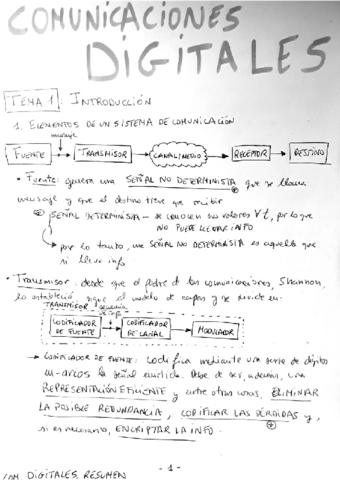 COMUNICACIONES
DIGITALES
TEMA 1: INTRODUCCIÓN
1. ELEMENTOS DE UN SISTEMA DE COMUNICACIÓN
mensaje
FUENTE → TRANSMISOR → CANAL/MEDIO → RECEPTOR → DESTINO
• Fuente: genera una SEÑAL NO DETERMINISTA que se llama
mensaje y que el destino tiene que recibir
SEÑAL DETERMINISTA – se conocen sus valores ∀t, por lo que
NO PUEDE LLEVAR INFO
↳ por lo tanto, una SEÑAL NO DETERMINISTA es aquella que
sí lleva info.
• Transmisor: desde que el padre de las comunicaciones, Shannon,
lo estableció, sigue el modelo de capas y se divide en:
TRANSMISOR
CODIFICADOR DE FUENTE → CODIFICADOR DE CANAL → MODULADOR
→ CODIFICADOR DE FUENTE: Codifica mediante una serie de dígitos
la señal. Debe de ser, además, una
REPRESENTACIÓN EFICIENTE y entre otras cosas, ELIMINAR
LA POSIBLE REDUNDANCIA, CODIFICAR LAS PÉRDIDAS y,
si es necesario, ENCRIPTAR LA INFO.
- 1 -
COM. DIGITALES, RESUMEN